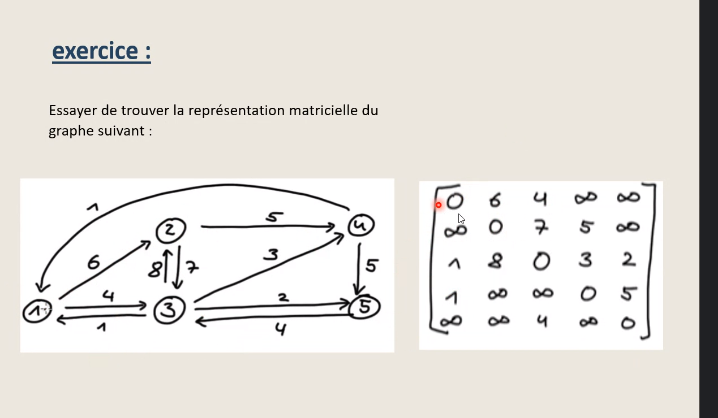 exercice :
Essayer de trouver la représentation matricielle du
graphe suivant :
1
2
5
4
6
8
7
3
5
1
4
3
2
5
1
4
0 6 4 ∞ ∞
∞ 0 7 5 ∞
1 8 0 3 2
1 ∞ ∞ 0 5
∞ ∞ 4 ∞ 0